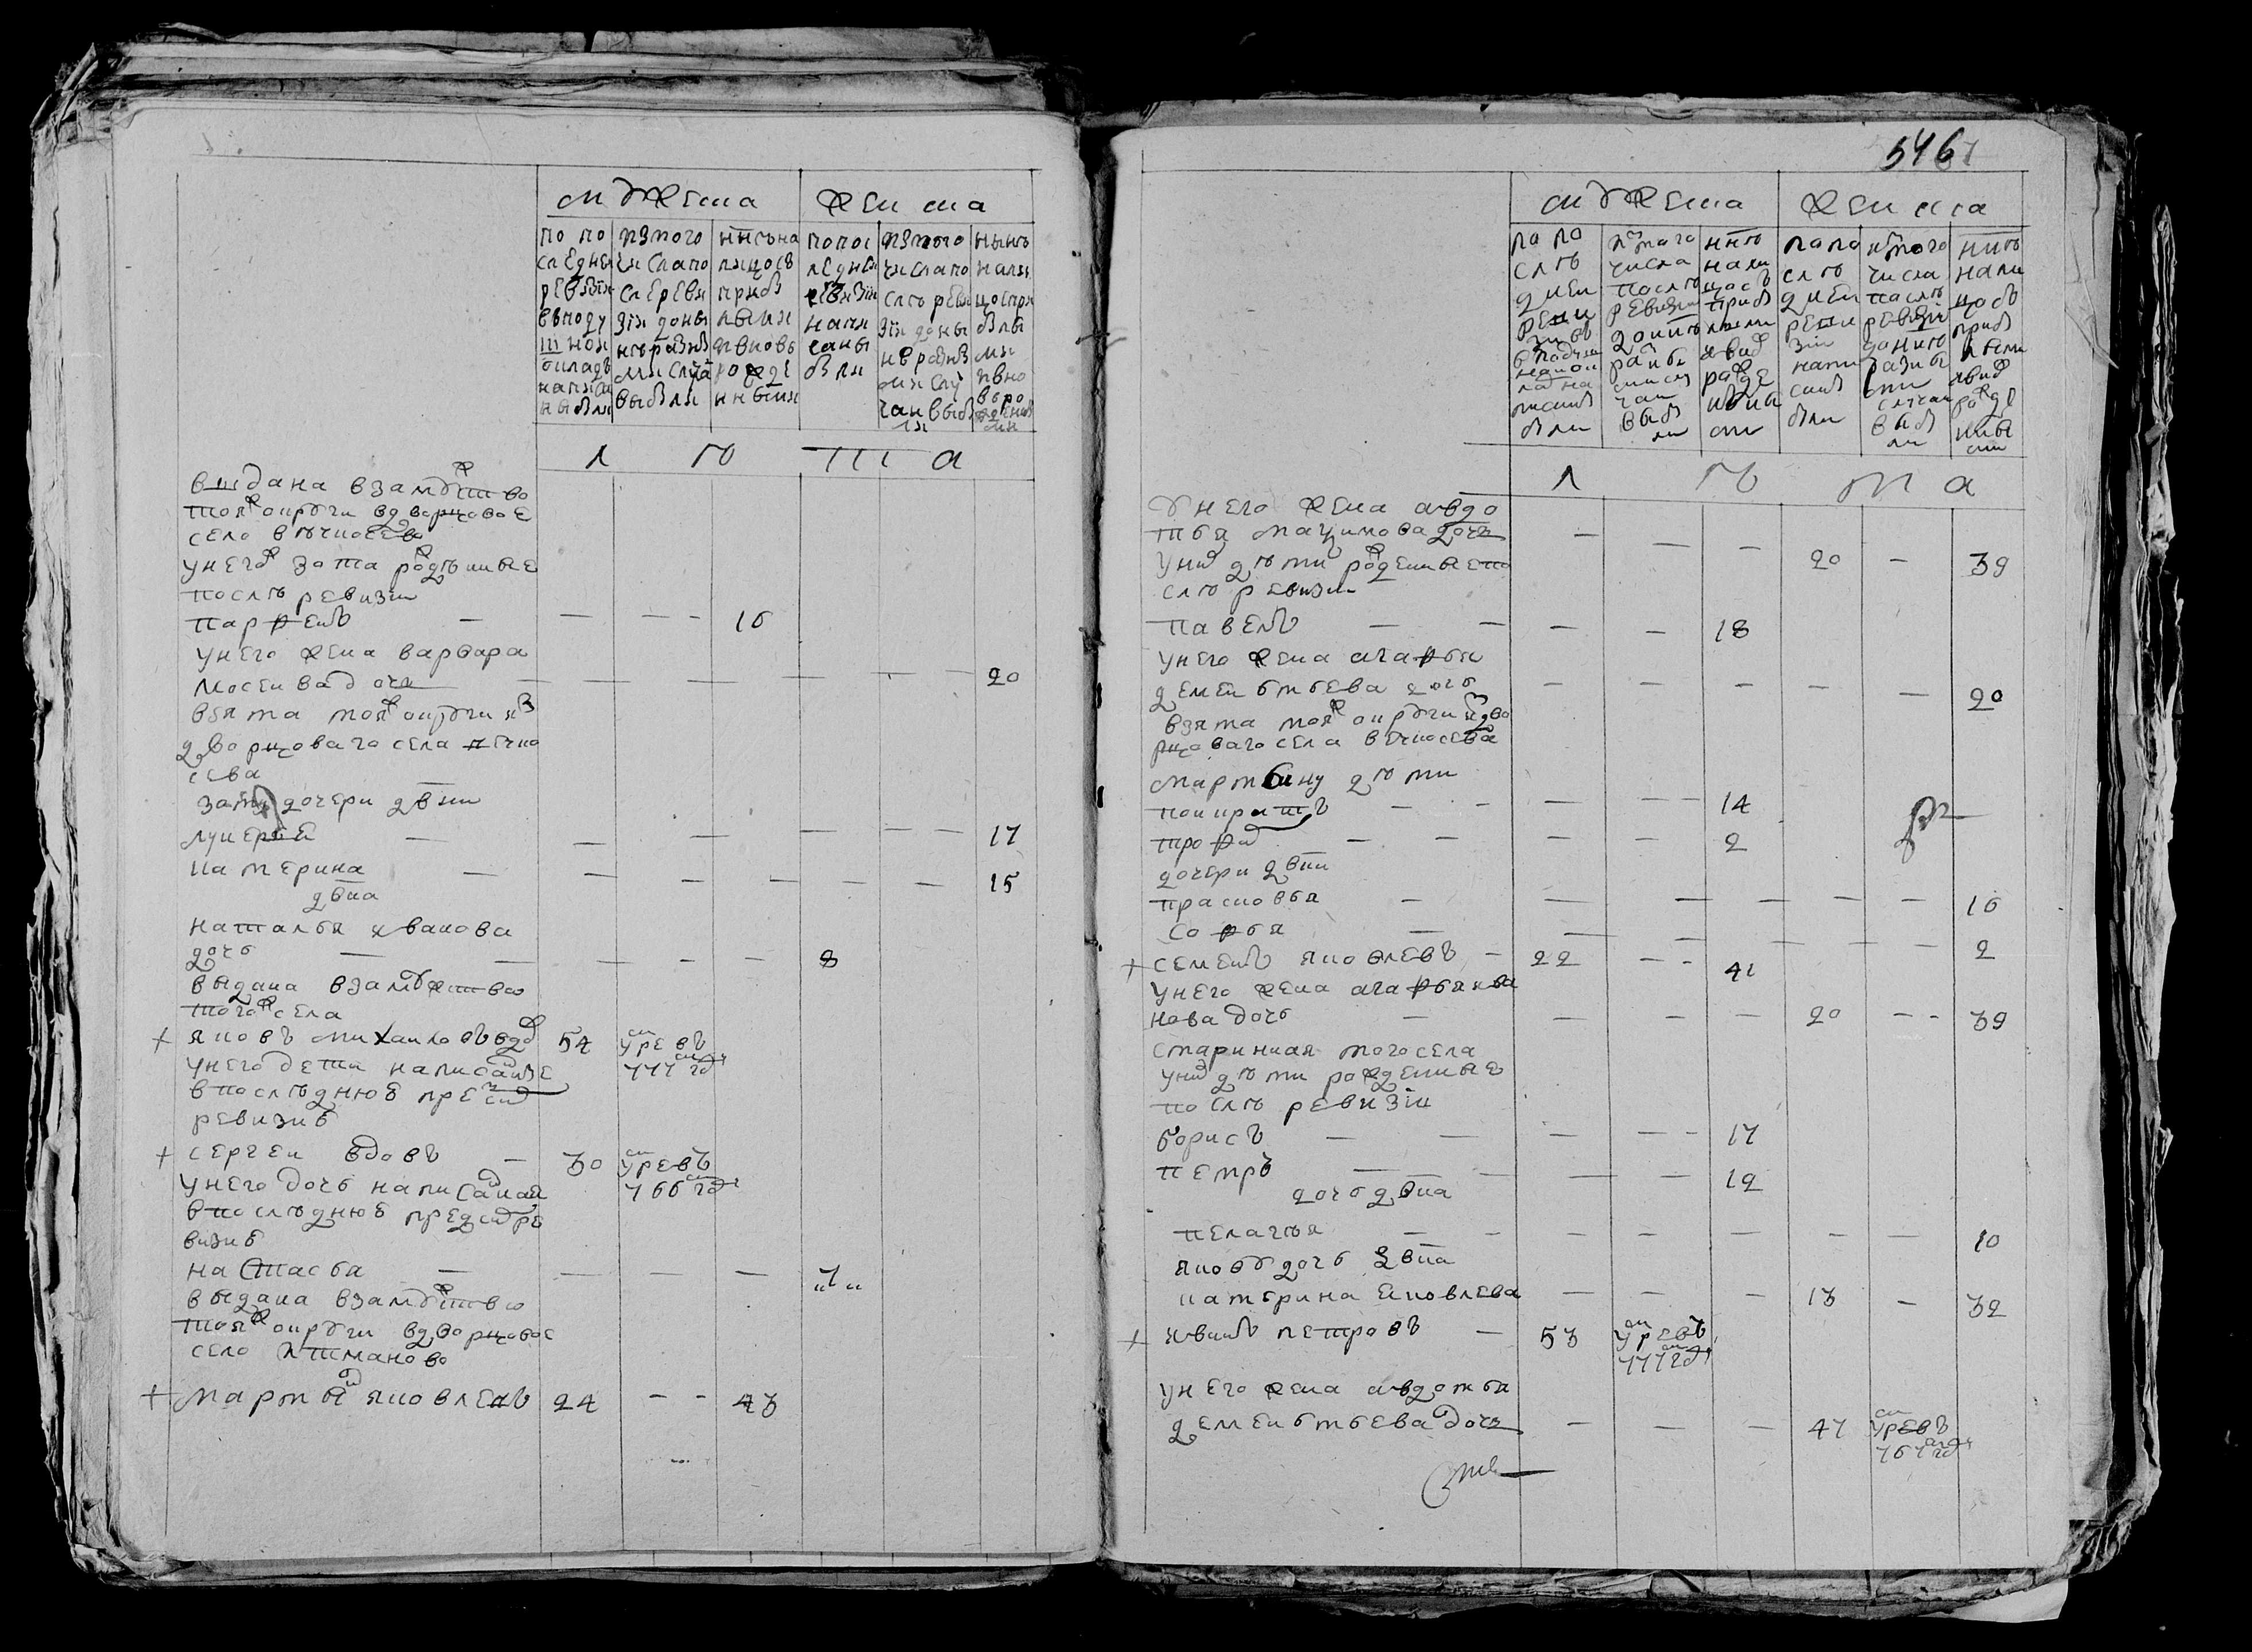 мужеска
женска
по по
следнеи
ревизіи
в поду
шнои
окладъ
написа
ны были
изтого
числа по
сле реви
зіи доны
не разны
ми случа
выбыли
ннѣ сьна
лицо съ
прибы
лыми
и вновь
рожде
нными
по пос
ледней
ревизіи
напи
саны
были
изтого
числа по
слѣ реви
зіи доны
нѣ разны
ми слу
чаи выбы
ли
нынѣ
нали
цо спри
былы
ми
ивно
вьро
жденны
ми
лѣта
выдана взамужство
тояж округи вдворцовое
село вѣчкосево
унегож зята рожденные
послѣ ревизіи
парфенъ — — — - 16
унего жена варвара
мосеива дочь — — — — — — 20
взята тояж округи из
дворцоваго села вечко
сева
зятя дочери двки
лукерья — — — — — — 17
катерина — — — — — — 15
двка
наталья иванова
дочь — — — - — 8
выдана взамужство
тогож села
+ яковъ михаиловъ вдв 54 умре въ
777 гд
унего дети написаные
впослѣднюю пред сим
ревизию
+ сергеи вдовъ — 30 умре въ
766 гд
унего дочь написаная
впослѣднюю пред сим ре
визию
настасья — — — — 7
выдана взамужство
тояж округи вдворцовое
село атманово
+ мартын яковлевъ 24 - - 43
5461
мужеска
женска
по по
слѣ
днеи
реви
зіи въ
подуш
нои ок
лад на
писаны
были
изтаго
числа
послѣ
ревизіи
доннѣ
разны
ми слу
чаи
выбы
ли
ннѣ
нали
цось
прибы
лыми
ивнов
рожде
нны
ми
по по
слѣ
днеи
реви
зіи
напи
саны
были
изтого
числа
послѣ
ревизіи
доннѣ
разны
ми
случаи
выбы
ли
ннѣ
нали
цо съ
прибы
лыми
ивнов
рожде
нны
ми
лѣта
унего жена авдо
тья макимова дочь — — — 20 — 39
уних дѣти рожденые по
слѣ ревизіи
павелъ — — — — 18
унего жена агафья
дементьева дочь — — — — — 20
взята тояж округи из дво
рцоваго села вечкосева
мартыну дѣти
кондратъ — - — — - 14
трофим — — — — 2
дочери двки
прасковья — — — — — — 16
софья — — — — — — 2
+ семенъ яковлевъ - 22 — - 41
унего жена агафья ива
нова дочь — — — — 20 - - 39
старинная того села
уних дѣти рожденные
послѣ ревизіи
борисъ — — — — - 17
петръ — — — — 12
дочь двка
пелагѣя — - — — — — — 10
якову дочь двка
катерина яковлева — — — 13 — 32
+ иванъ петровъ — 53 умре въ
777 гд
унего жена авдотья
дементьева дочь — — — 47 умре въ
767 гд